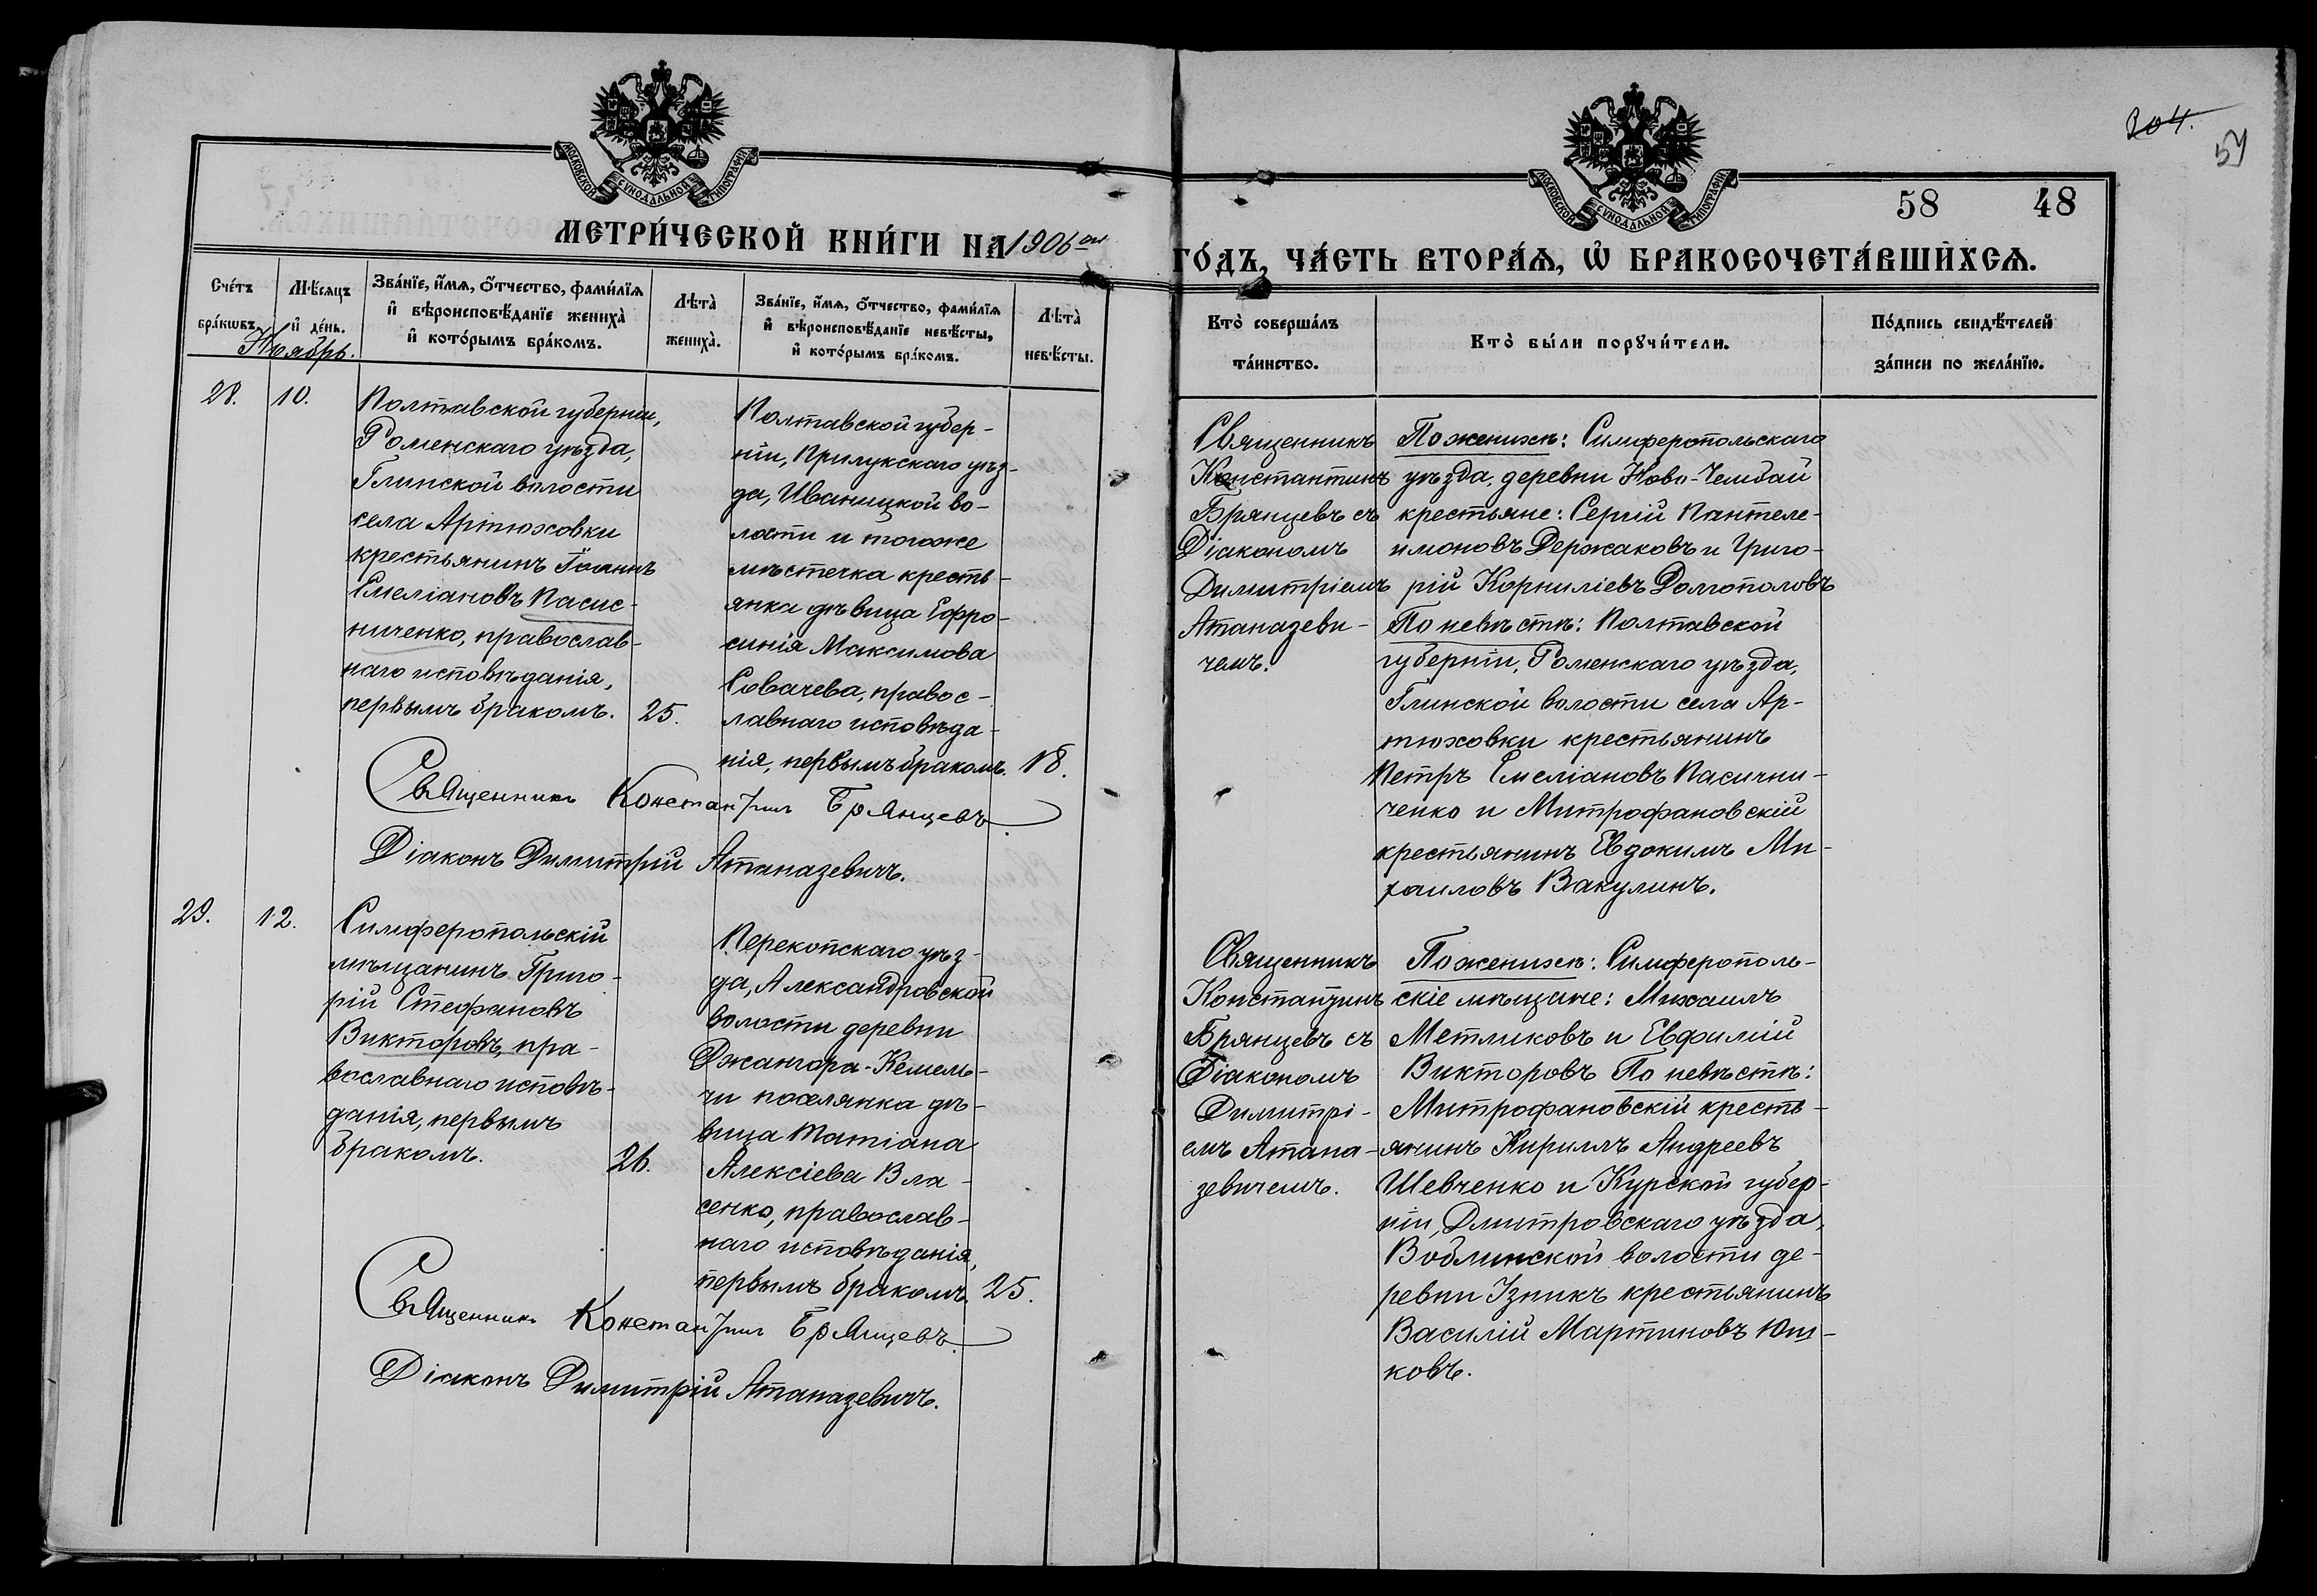 304.
59
58 48
МОСКОВСКОЙ СѴНОДАЛЬНОЙ ТИПОГРАФІИ
МОСКОВСКОЙ СѴНОДАЛЬНОЙ ТИПОГРАФІИ
МЕТРИ́ЧЕСКОЙ КНИ́ГИ НА 1906 ой
ГО́ДЪ, ЧА́СТЬ ВТОРА́Ѧ, Ѡ҆ БРАКОСОЧЕТА́ВШИХСѦ.
Сче́тъ бра́кѡвъ.
Мѣ́сяцъ и҆ де́нь.
Зва́нїе, и҆́мѧ, ѻ҆́тчество, фами́лїѧ и҆ вѣроисповѣ́данїе жениха̀ и҆ кото́рымъ бра́комъ.
Лѣта̀ жениха̀.
Зва́нїе, и҆́мѧ, ѻ҆́тчество, фами́лїѧ и҆ вѣроисповѣ́данїе невѣ́сты, и҆ кото́рымъ бра́комъ.
Лѣта̀ невѣ́сты.
Кто̀ соверша́лъ та́инство.
Кто̀ бы́ли порꙋчи́тели.
По́дпись свидѣ́телей за́писи по жела́нїю.
Ноябрь.
28.
10.
Полтавской губерніи,
Роменскаго уѣзда,
Глинской волости
села Артюховки
крестьянинъ Іоаннъ
Емеліановъ Пасис-
ниченко, православ-
наго исповѣданія,
первымъ бракомъ.
25.
Полтавской губер-
ніи, Прилукскаго уѣз-
да, Иваницкой во-
лости и тогоже
мѣстечка кресть-
янка дѣвица Ефро-
синія Максимова
Совачева, правос-
лавнаго исповѣда-
нія, первымъ бракомъ.
18.
Священникъ Константинъ Брянцевъ.
Діаконъ Димитрій Атаназевичъ.
Священникъ
Константинъ
Брянцевъ съ
Діакономъ
Димитріемъ
Атаназеви-
чемъ.
По женихѣ: Симферопольскаго
уѣзда, деревни Ново-Чембай
крестьяне: Сергій Пантеле-
имоновъ Держаковъ и Григо-
рій Корниліевъ Долгополовъ
По невѣстѣ: Полтавской
губерніи, Роменскаго уѣзда,
Глинской волости села Ар-
тюховки крестьянинъ
Петръ Емеліановъ Пасични-
ченко и Митрофановскій
крестьянинъ Евдокимъ Ми-
хаиловъ Вакулинъ.
29.
12.
Симферопольскій
мѣщанинъ Григо-
рій Стефановъ
Викторовъ, пра-
вославнаго исповѣ-
данія, первымъ
бракомъ.
26.
Перекопскаго уѣз-
да, Александровской
волости деревни
Джангара-Кемель-
чи поселянка дѣ-
вица Татіана
Алексіева Вла-
сенко, православ-
наго исповѣданія,
первымъ бракомъ.
25.
Священникъ Константинъ Брянцевъ.
Діаконъ Димитрій Атаназевичъ.
Священникъ
Константинъ
Брянцевъ съ
Діакономъ
Димитрі-
емъ Атана-
зевичемъ.
По женихѣ: Симферополь-
скіе мѣщане: Михаилъ
Метликовъ и Евфимій
Викторовъ По невѣстѣ:
Митрофановскій кресть-
янинъ Кириллъ Андреевъ
Шевченко и Курской губер-
ніи, Дмитровскаго уѣзда,
Воблинской волости де-
ревни Ізникъ крестьянинъ
Василій Мартиновъ Юш-
ковъ.